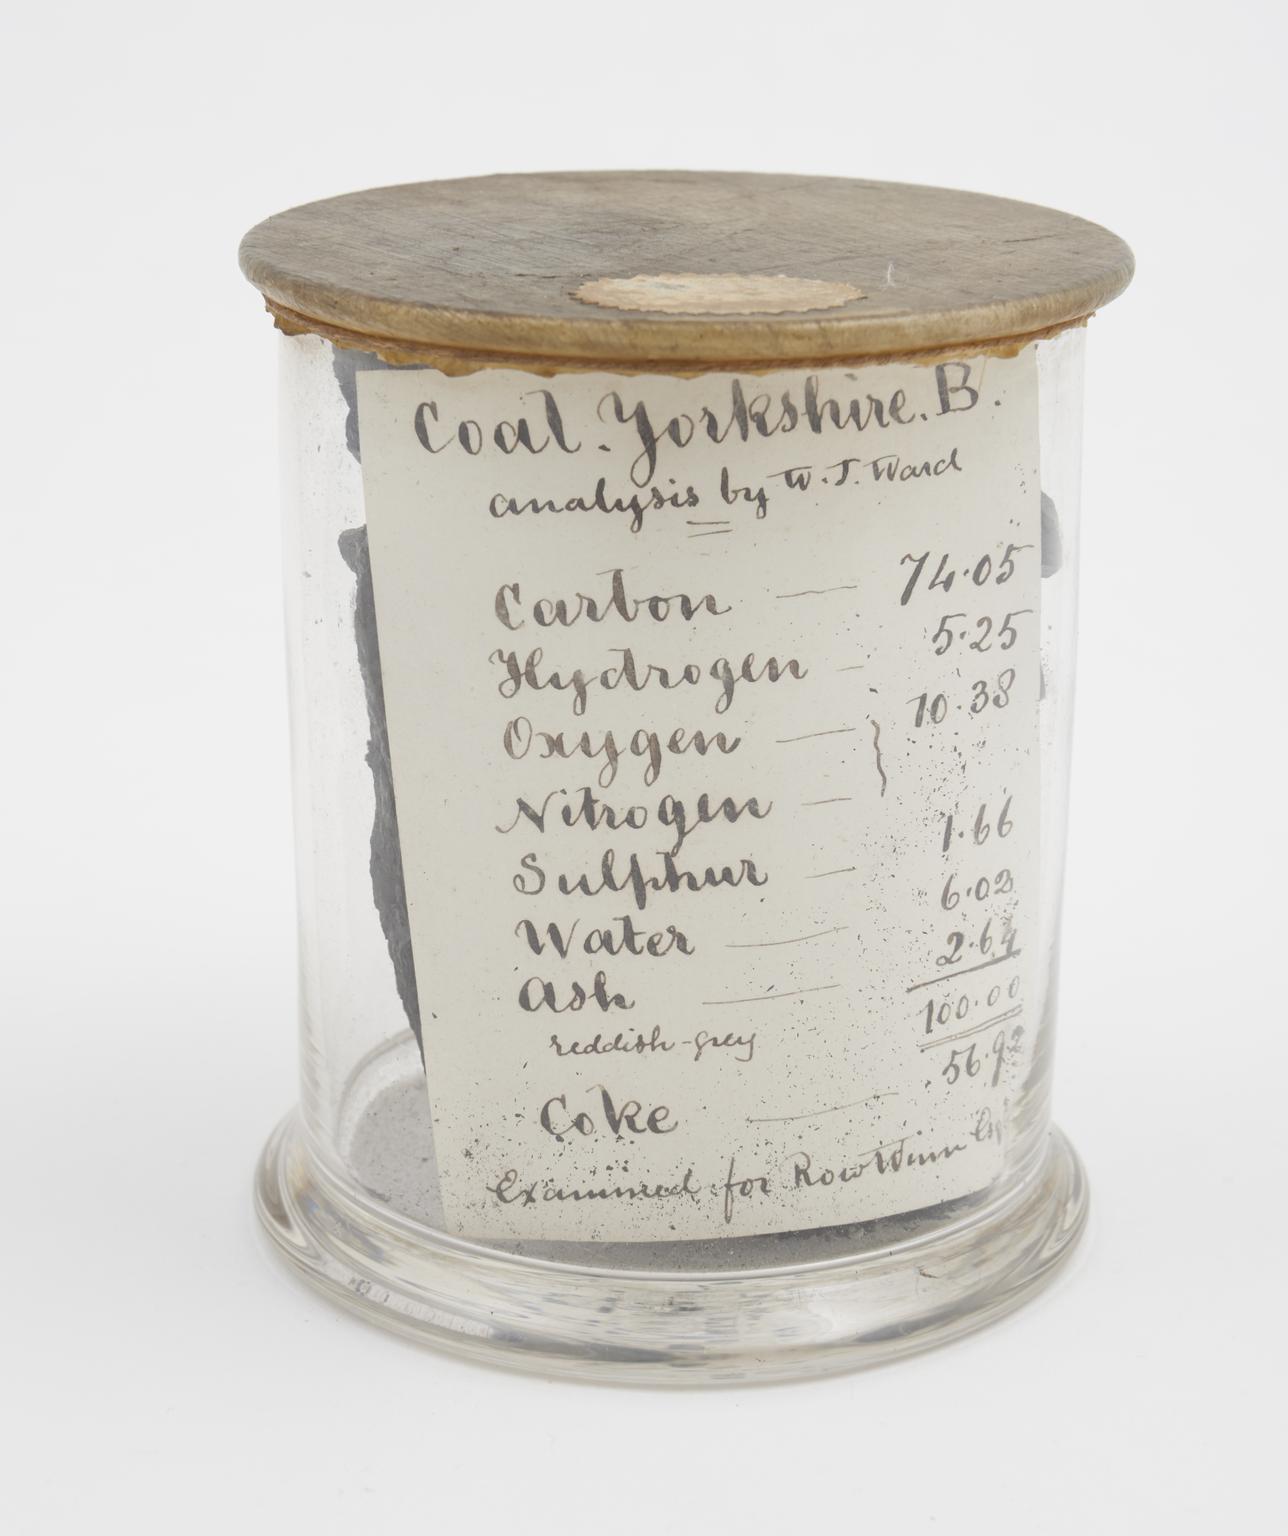 Coal. Yorkshire. B.
analysis by W. J. Ward
Carbon — 74.05
Hydrogen - 5.25
Oxygen — } 10.38
Nitrogen —
Sulphur — 1.66
Water — 6.02
Ash — 2.64
reddish-grey 100.00
Coke — 56.92
Examined for Row Winn Esq